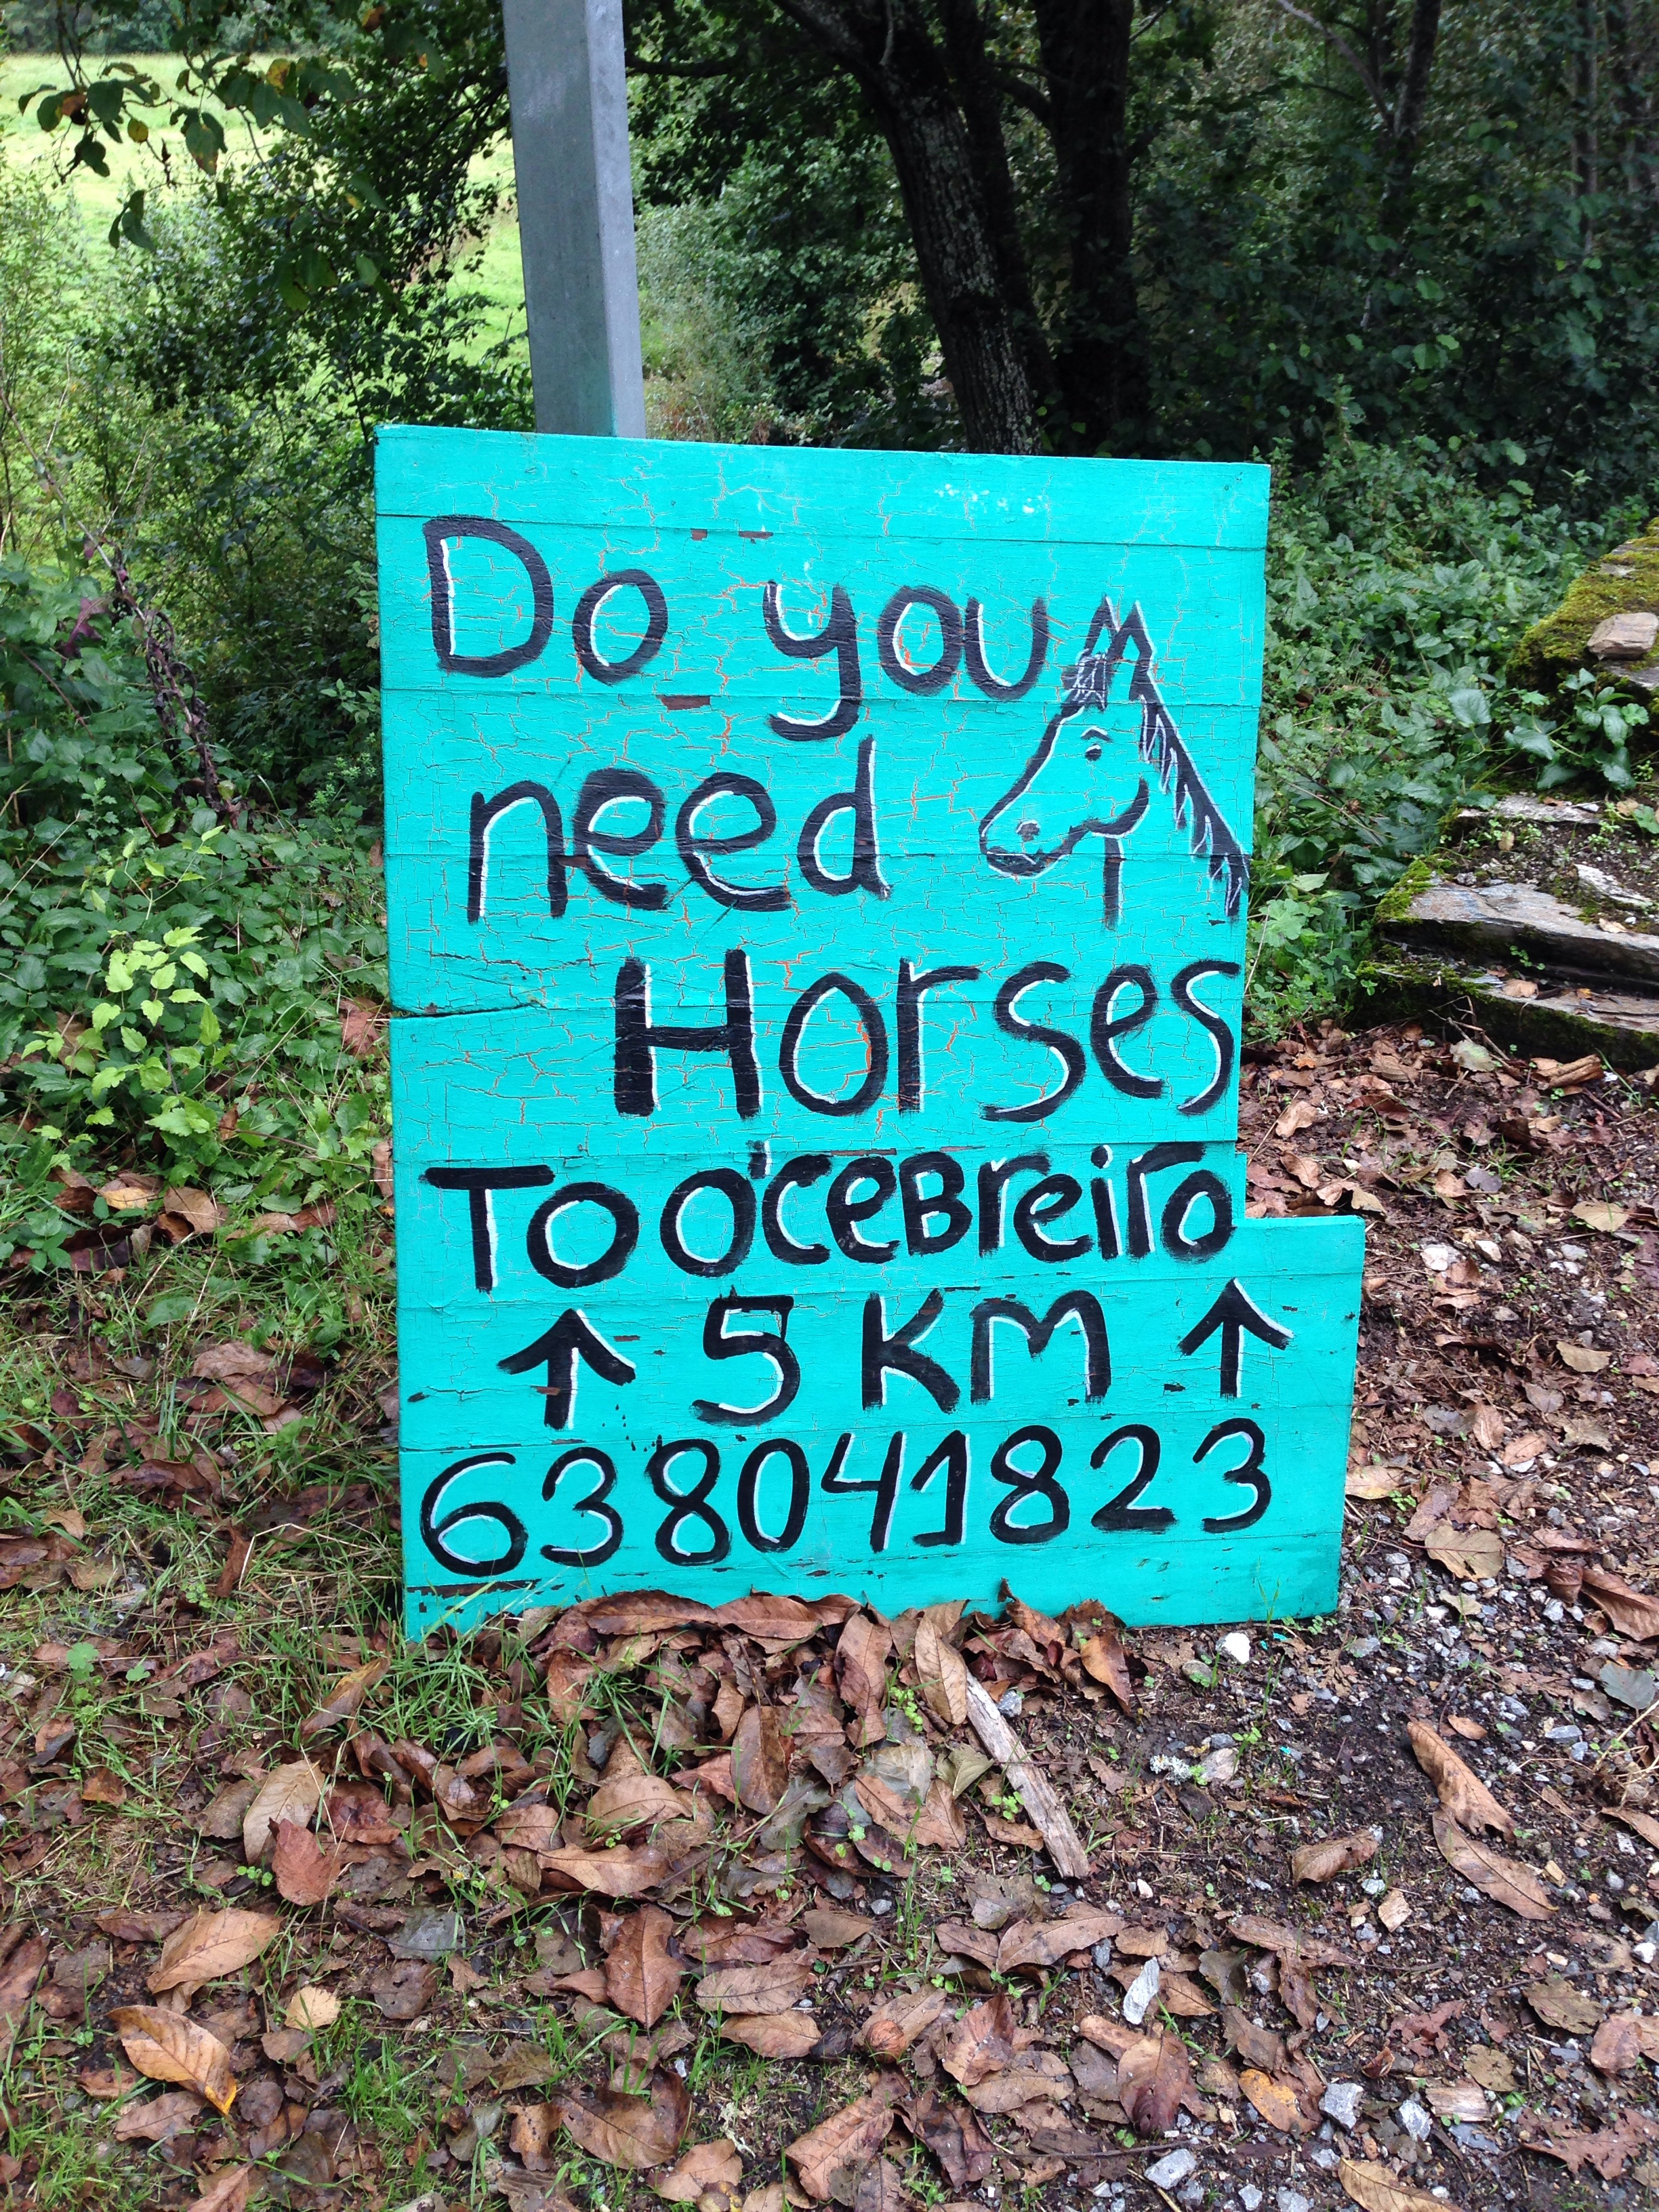 Do you
need
Horses
To O'ceBreiro
↑ 5 KM ↑
638041823